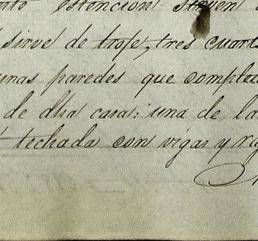 estencion
sirve de trofe, tres cuart
unas paredes que complet
de dha casa: una de la
techada con vigas y